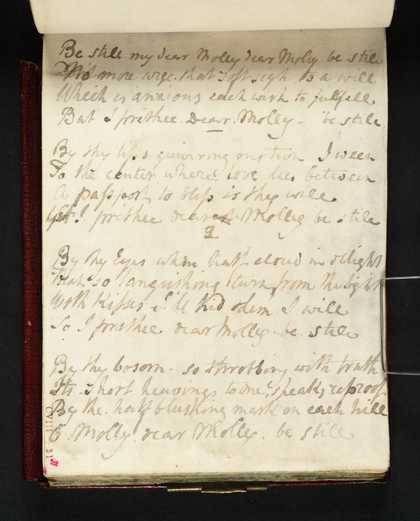 Be still my dear Molly dear Moly be still
No more urge that soft sigh to a will
Which is anxious each wish to fulfell
But I prethee Dear Molly - be still
By thy lips quivering motion I ween
To the center where love lies between
A passport to bliss is thy will
Yet I prethee dear Molly be still
By thy Eyes when half cloud in delight
That so languishing turn from the light
With kisses I'll hid them I will
So I prethee dear Molly be still
By thy bosom so throbbing with truth
Its short heavings to me speaks reproof
By the half blushing mark on each hill
O Molly dear Molly be still